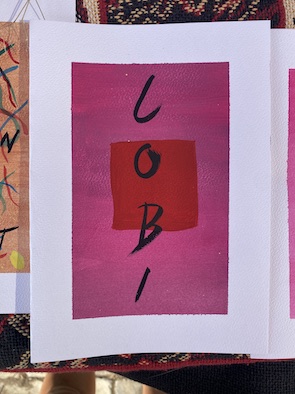 LOBI
N